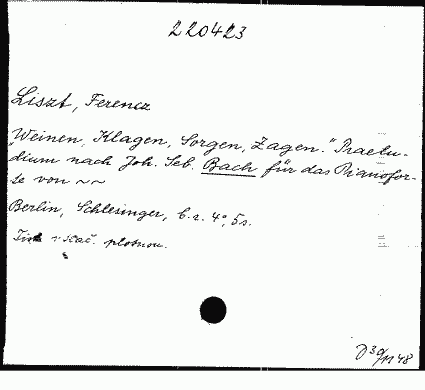 220423
Liszt, Ferencz
"Weinen, Klagen, Sorgen, Zagen." Praelu-
dium nach Joh. Seb. Bach für das Pianofor-
te von ~~
Berlin, Schlesinger, b. r. 4°, 5 s.
Tisk
30/11 48